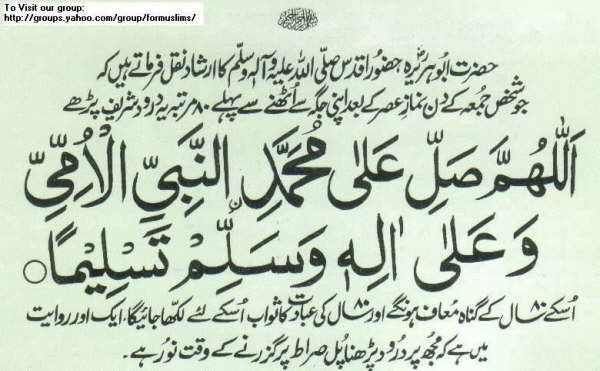 To Visit our group:
http://groups.yahoo.com/group/formuslims/
حضرت ابوہریرہؓ حضورِ اقدس صلّی اللہ علیہ وآلہٖ وسلّم کا ارشاد نقل فرماتے ہیں کہ
جو شخص جمعہ کے دن نمازِ عصر کے بعد اپنی جگہ سے اُٹھنے سے پہلے ۸۰ مرتبہ یہ درود شریف پڑھے
اَللّٰهُمَّ صَلِّ عَلٰى مُحَمَّدِ النَّبِيِّ الْاُمِّيِّ
وَعَلٰى اٰلِهٖ وَسَلِّمْ تَسْلِيْمًا ○
اُسکے ۸۰ سال کے گناہ معاف ہونگے اور ۸۰ سال کی عبادت کا ثواب اسکے لئے لکھا جائیگا، ایک اور روایت
میں ہے کہ مجھ پر درود پڑھنا پل صراط پر گزرنے کے وقت نور ہے۔